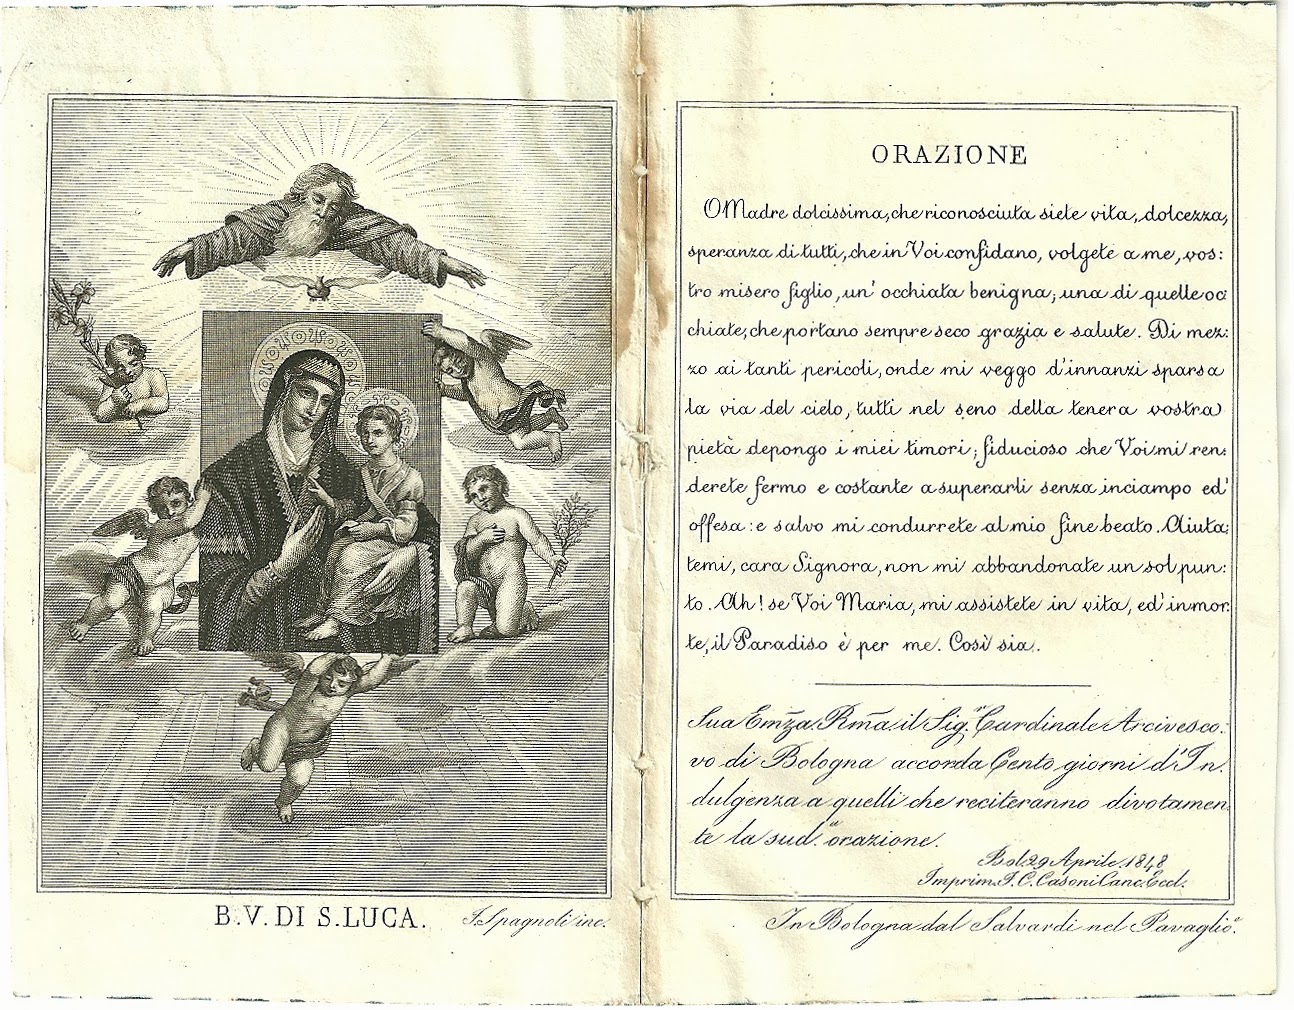 B.V. DI S. LUCA.
Spagnoli inc.
ORAZIONE
O Madre dolcissima, che riconosciuta siete vita, dolcezza,
speranza di tutti, che in Voi confidano, volgete a me, vos:
tro misero figlio, un' occhiata benigna; una di quelle oc
chiate, che portano sempre seco grazia e salute. Di mez:
zo ai tanti pericoli, onde mi veggo d'innanzi sparsa
la via del cielo, tutti nel seno della tenera vostra
pietà depongo i miei timori; fiducioso che Voi mi ren:
derete fermo e costante a superarli senza inciampo ed'
offesa: e salvo mi condurrete al mio fine beato. Aiuta:
temi, cara Signora, non mi abbandonate un sol pun:
to. Ah! se Voi Maria, mi assistete in vita, ed' in mor:
te, il Paradiso è per me. Così sia.
Sua Emza Rma il Sig. Cardinale Arcivesco:
vo di Bologna accorda Cento giorni d'In:
dulgenza a quelli che reciteranno divotamen
te la sud.a orazione.
Bol. 29 Aprile. 1848
Imprim. J. C. Casoni Canc. Eccl.
In Bologna dal Salvardi nel Pavaglio.e